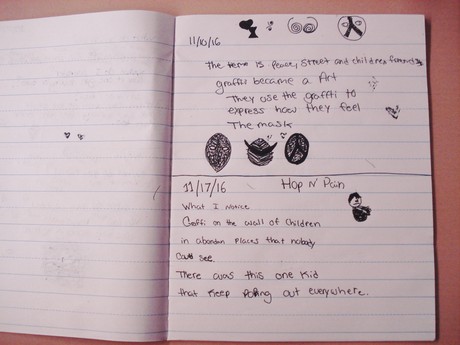 11/10/16
The teme is Peace, Street and children
graffiti became a Art
They use the graffiti to
express how they feel
The mask
11/17/16 Hop N' Pain
What I Notice
Graffi on the wall of children
in abandon places that nobody
could see
There was this one kid
that keep out everywhere.